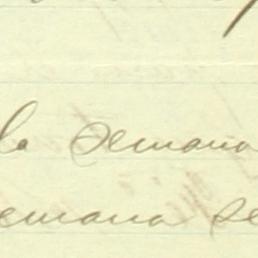 la semana
semana se